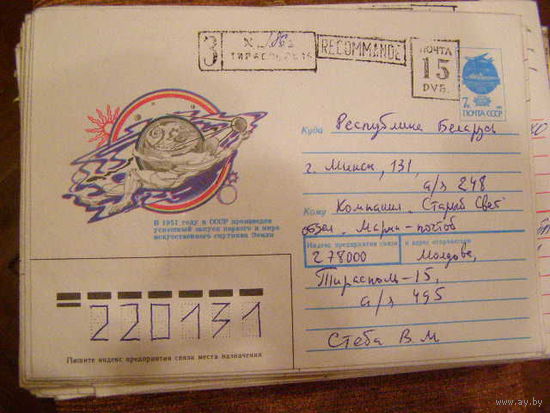 З
ТИРАСПОЛЬ 15
RECOMMANDÉ
ПОЧТА
15
РУБ.
7к
ПОЧТА СССР
Куда Республика Беларусь
г. Минск, 131,
а/я 248
Кому Компания "Старый Свет"
Индекс предприятия связи и адрес отправителя
278000 Молдова,
Тирасполь-15,
а/я 495
Стеба В.М
В 1957 году в СССР произведен
успешный запуск первого в мире
искусственного спутника Земли
220131
Пишите индекс предприятия связи места назначения
www.ay.by